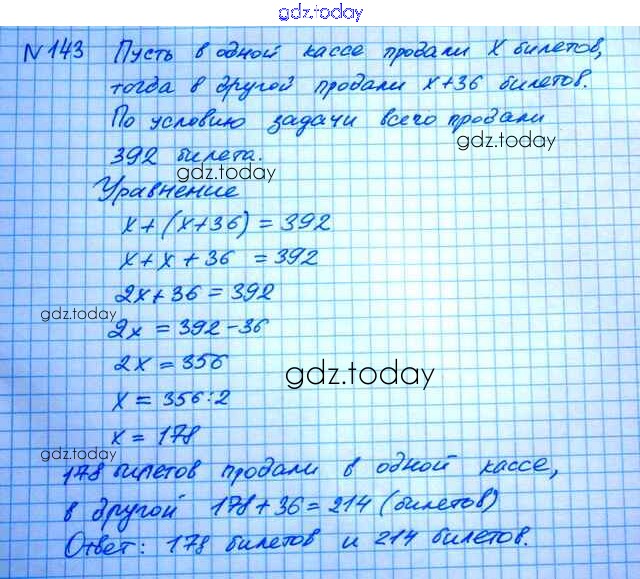 gdz.today
N 143 Пусть в одной кассе продали x билетов,
тогда в другой продали x+36 билетов.
По условию задачи всего продали
gdz.today
392 билета.
gdz.today
Уравнение
x+(x+36) = 392
x+x+36 = 392
2x+36 = 392
gdz.today
2x = 392-36
2x = 356
gdz.today
x = 356:2
x = 178
gdz.today
178 билетов продали в одной кассе,
в другой 178+36=214 (билетов)
Ответ: 178 билетов и 214 билетов.